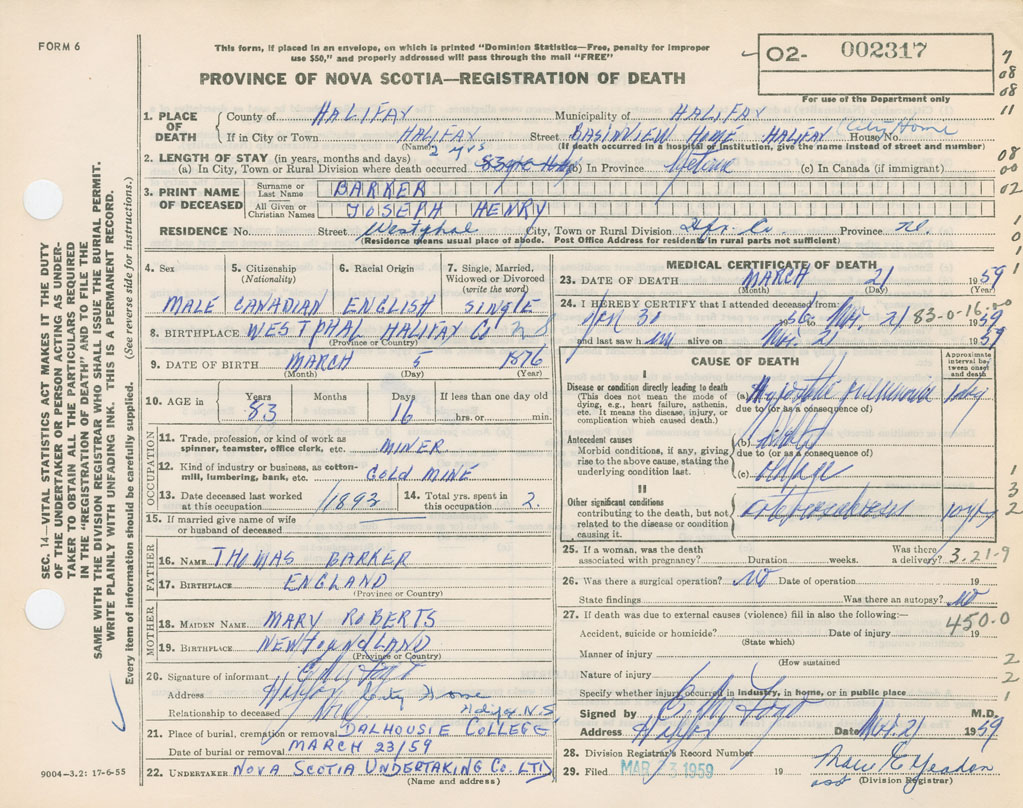 FORM 6
This form, if placed in an envelope, on which is printed "Dominion Statistics—Free, penalty for improper
use $50," and properly addressed will pass through the mail "FREE"
PROVINCE OF NOVA SCOTIA—REGISTRATION OF DEATH
02- 002317
For use of the Department only
7
08
08
11
08
00
02
1. PLACE OF DEATH
County of HALIFAX Municipality of HALIFAX
If in City or Town HALIFAX Street BASINVIEW HOME HALIFAX House No. City Home
(Name) (If death occurred in a hospital or institution, give the name instead of street and number)
2. LENGTH OF STAY (in years, months and days) 2 yrs
(a) In City, Town or Rural Division where death occurred (b) In Province (c) In Canada (if immigrant)
3. PRINT NAME OF DECEASED
Surname or Last Name BARKER
All Given or Christian Names JOSEPH HENRY
RESIDENCE No. Street Westphal City, Town or Rural Division Hfx. Co. Province
(Residence means usual place of abode. Post Office Address for residents in rural parts not sufficient)
4. Sex MALE
5. Citizenship (Nationality) CANADIAN
6. Racial Origin ENGLISH
7. Single, Married, Widowed or Divorced (write the word) SINGLE
8. BIRTHPLACE WESTPHAL HALIFAX Co
(Province or Country)
9. DATE OF BIRTH MARCH 5 1876
(Month) (Day) (Year)
10. AGE in Years 83 Months Days 16 If less than one day old hrs. or min.
OCCUPATION
11. Trade, profession, or kind of work as spinner, teamster, office clerk, etc. MINER
12. Kind of industry or business, as cotton-mill, lumbering, bank, etc. GOLD MINE
13. Date deceased last worked at this occupation 1893
14. Total yrs. spent in this occupation 2.
15. If married give name of wife or husband of deceased
FATHER
16. NAME THOMAS BARKER
17. BIRTHPLACE ENGLAND
(Province or Country)
MOTHER
18. MAIDEN NAME MARY ROBERTS
19. BIRTHPLACE NEWFOUNDLAND
(Province or Country)
20. Signature of informant
Address Halifax City Home
Relationship to deceased Halifax N.S.
21. Place of burial, cremation or removal DALHOUSIE COLLEGE
Date of burial or removal MARCH 23/59
22. UNDERTAKER NOVA SCOTIA UNDERTAKING CO. LTD
(Name and address)
MEDICAL CERTIFICATE OF DEATH
23. DATE OF DEATH MARCH 21 1959
(Month) (Day) (Year)
24. I HEREBY CERTIFY that I attended deceased from:
Jan 30 to Mar. 21 1959
83-0-16
and last saw him alive on Mar. 21 1959
CAUSE OF DEATH
Approximate interval between onset and death
Disease or condition directly leading to death
(This does not mean the mode of dying, e.g., heart failure, asthenia, etc. It means the disease, injury, or complication which caused death.)
(a) Hypostatic pneumonia 1 day
due to (or as a consequence of)
Antecedent causes
Morbid conditions, if any, giving rise to the above cause, stating the underlying condition last.
(b)
due to (or as a consequence of)
(c) old age
II
Other significant conditions
contributing to the death, but not related to the disease or condition causing it.
25. If a woman, was the death associated with pregnancy? Duration weeks. Was there a delivery? 3.21-9
26. Was there a surgical operation? No Date of operation 19
State findings Was there an autopsy? No
27. If death was due to external causes (violence) fill in also the following:— 450.0
Accident, suicide or homicide? Date of injury 19
(State which)
Manner of injury
(How sustained)
Nature of injury
Specify whether injury occurred in industry, in home, or in public place
Signed by M.D.
Address Halifax Date Mar. 21 1959
28. Division Registrar's Record Number
29. Filed MAR 23 1959 19
(Division Registrar)
SEC. 14—VITAL STATISTICS ACT MAKES IT THE DUTY
OF THE UNDERTAKER OR PERSON ACTING AS UNDER-
TAKER TO OBTAIN ALL THE PARTICULARS REQUIRED
IN THE "REGISTRATION OF DEATH" AND TO FILE THE
SAME WITH THE DIVISION REGISTRAR WHO SHALL ISSUE THE BURIAL PERMIT.
WRITE PLAINLY WITH UNFADING INK. THIS IS A PERMANENT RECORD.
Every item of information should be carefully supplied. (See reverse side for instructions.)
9004-3.2: 17-6-55